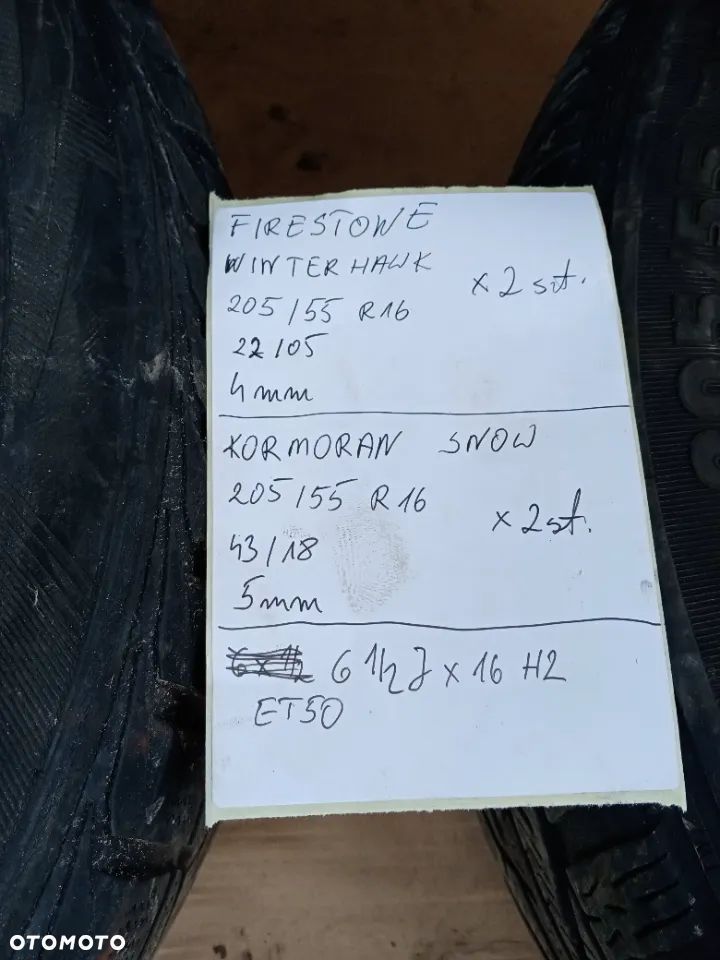 FIRESTOWE
WINTERHAWK
205/55 R16
x 2 szt.
22/05
4mm
KORMORAN SNOW
205/55 R16
x 2szt.
43/18
5mm
6 1/2 J x 16 H2
ET50
205/55
OTOMOTO